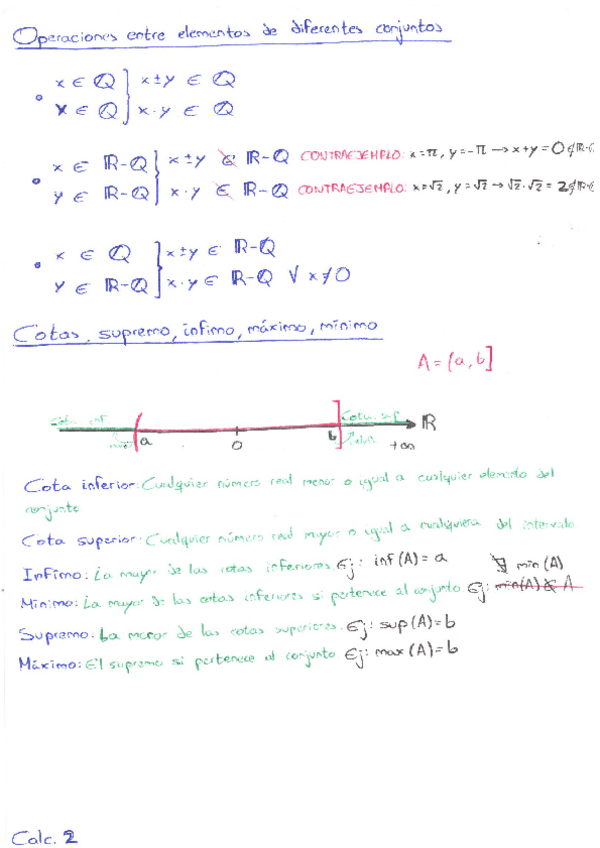 Operaciones entre elementos de diferentes conjuntos
• x ∈ ℚ } x±y ∈ ℚ
y ∈ ℚ } x·y ∈ ℚ
• x ∈ ℝ-ℚ } x±y ∉ ℝ-ℚ CONTRAEJEMPLO: x=π, y=-π → x+y=0∉ℝ-ℚ
y ∈ ℝ-ℚ } x·y ∉ ℝ-ℚ CONTRAEJEMPLO: x=√2, y=√2 → √2·√2 = 2∉ℝ-ℚ
• x ∈ ℚ } x±y ∈ ℝ-ℚ
y ∈ ℝ-ℚ } x·y ∈ ℝ-ℚ ∀ x≠0
Cotas, supremo, ínfimo, máximo, mínimo
A=(a,b]
Cota inf. Cota sup. ℝ
a 0 b +∞
Cota inferior: Cualquier número real menor o igual a cualquier elemento del
conjunto
Cota superior: Cualquier número real mayor o igual a cualquiera del intervalo
Infimo: La mayor de las cotas inferiores Ej: inf(A)=a
∄ min(A)
Mínimo: La mayor de las cotas inferiores si pertenece al conjunto Ej: min(A)∉A
Supremo: La menor de las cotas superiores. Ej: sup(A)=b
Máximo: El supremo si pertenece al conjunto Ej: max(A)=b
Calc. 2